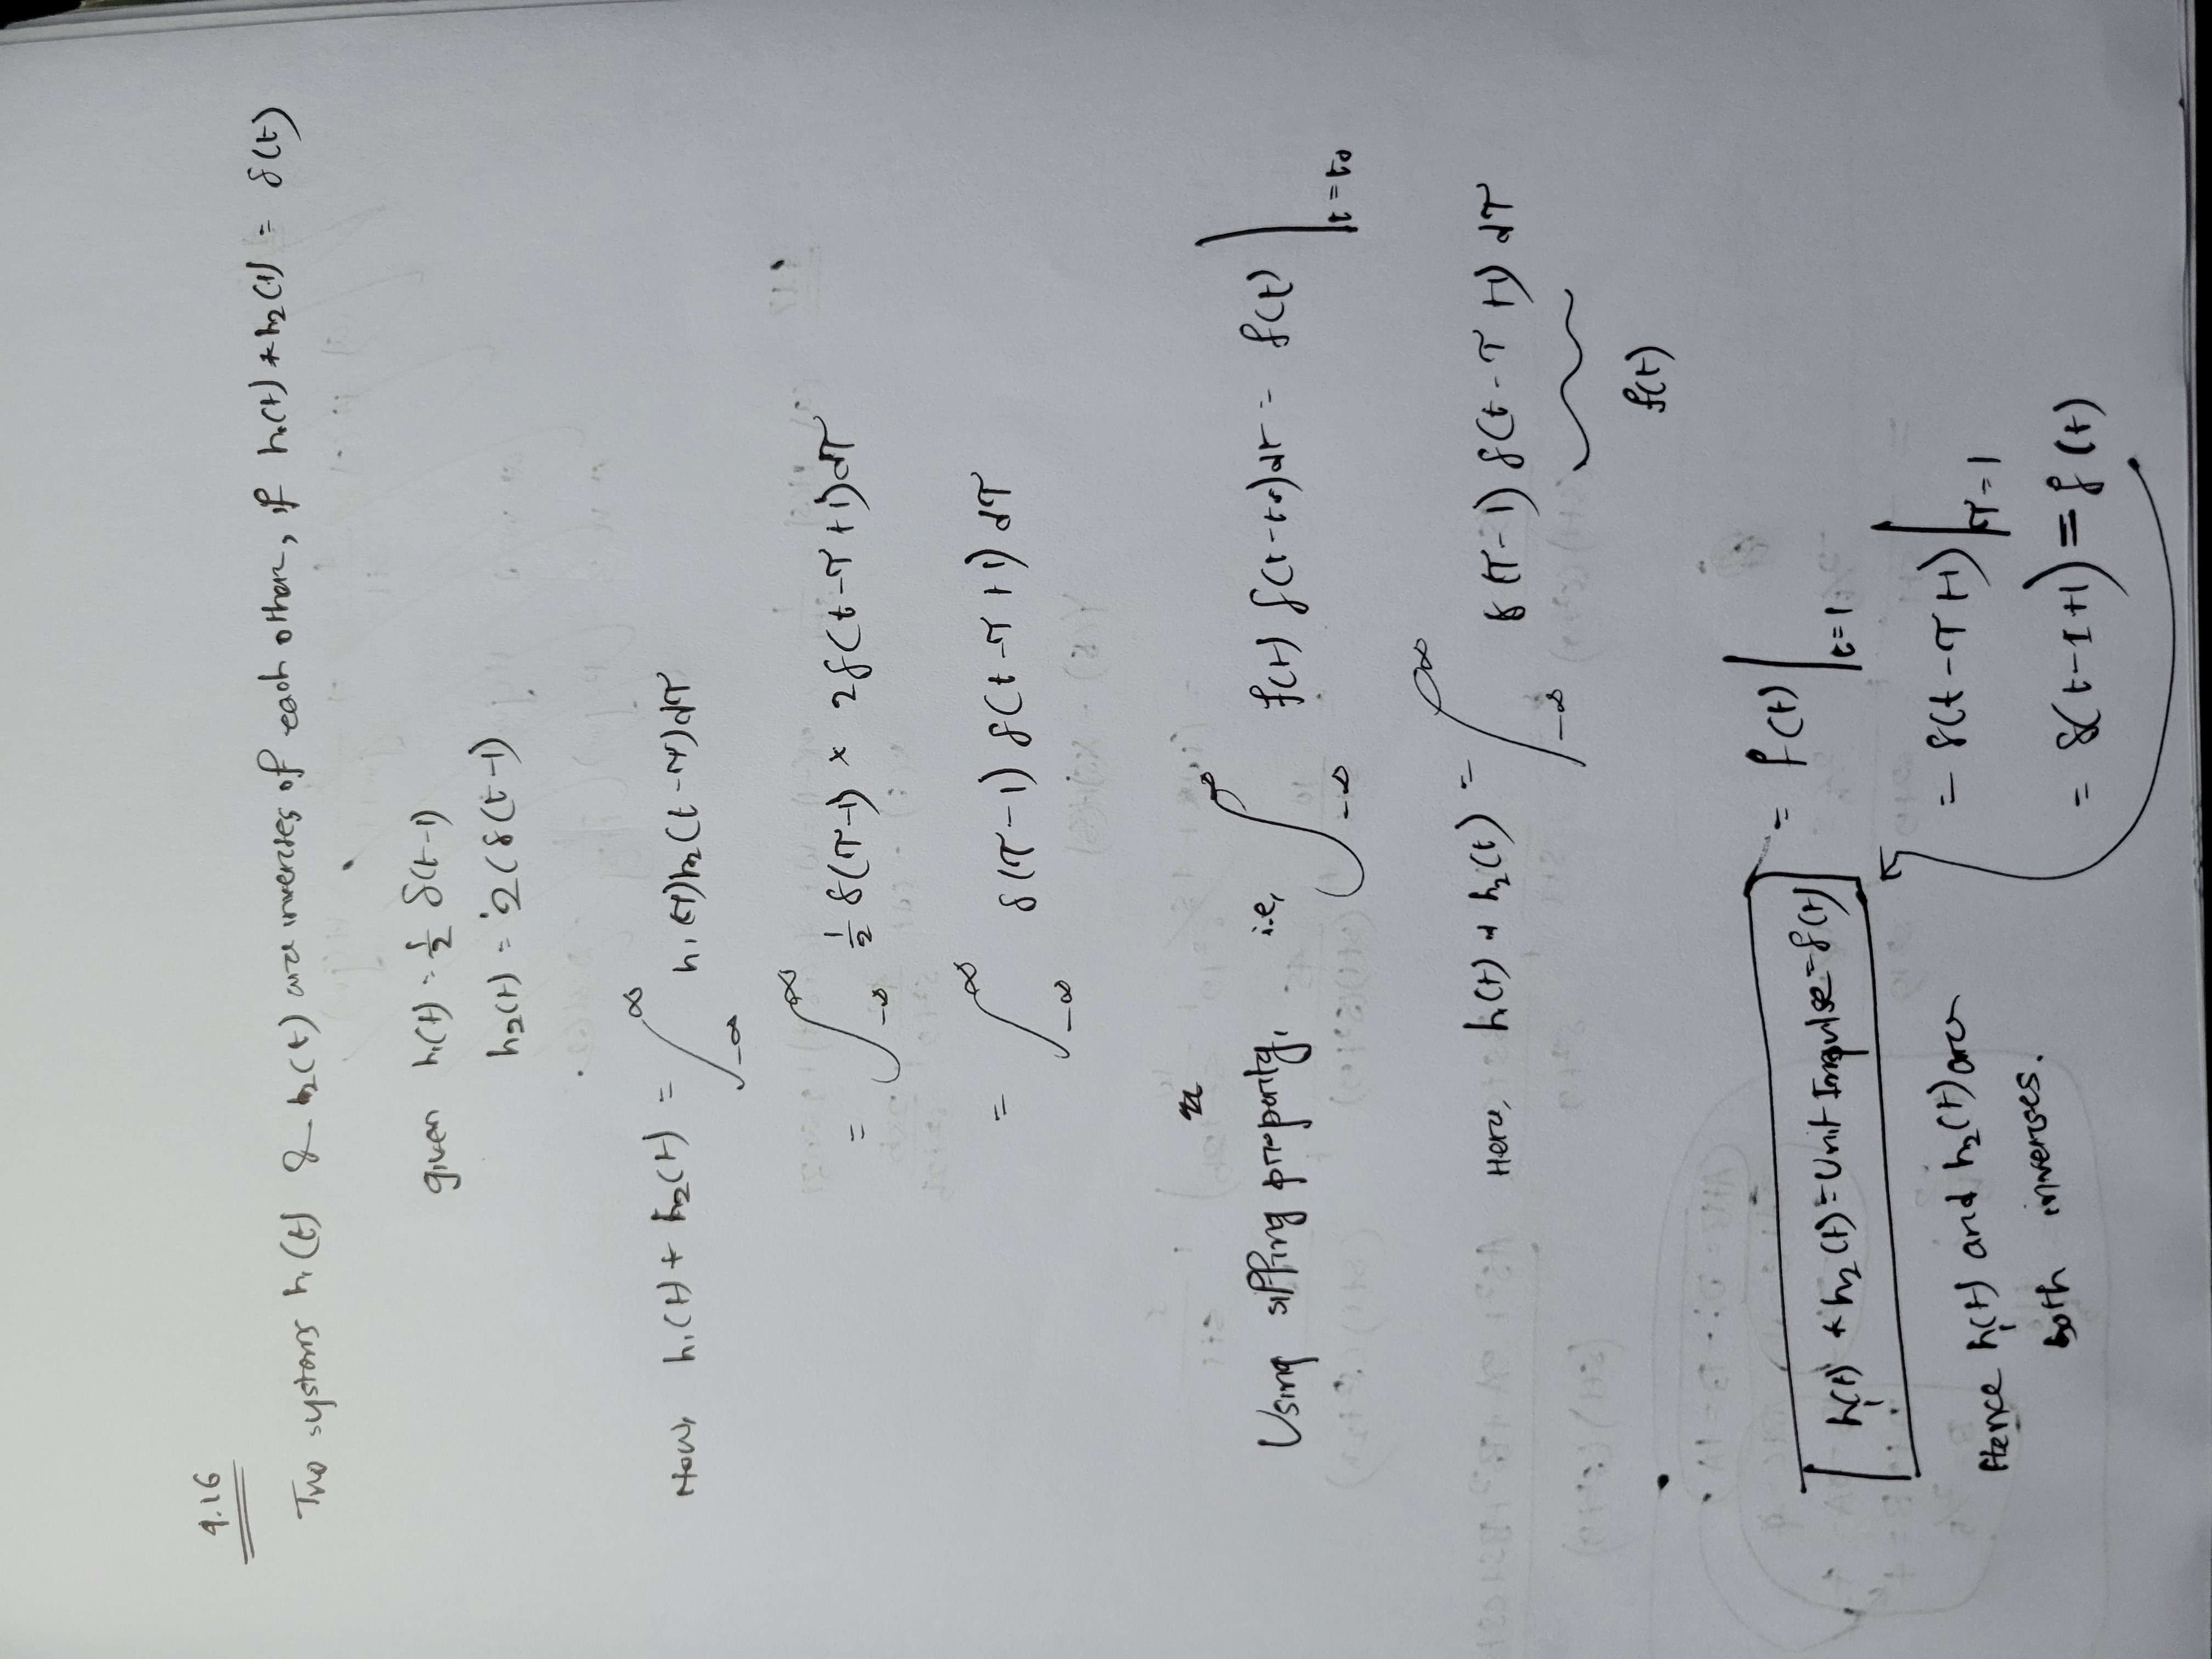 4.16
Two systems h₁(t) & h₂(t) are inverses of each other, if h₁(t) * h₂(t) = δ(t)
given h₁(t) = 1/2 δ(t-1)
h₂(t) = 2(δ(t-1)
Now, h₁(t) * h₂(t) = ∫_{-∞}^{∞} h₁(τ)h₂(t-τ)dτ
= ∫_{-∞}^{∞} 1/2 δ(τ-1) × 2δ(t-τ+1)dτ
= ∫_{-∞}^{∞} δ(τ-1) δ(t-τ+1) dτ
Using siffing property, i.e, ∫_{-∞}^{∞} f(t) δ(t-t₀)dt = f(t) |_{t=t₀}
Here, h₁(t) * h₂(t) = ∫_{-∞}^{∞} δ(τ-1) δ(t-τ+1) dτ
f(t)
= f(t) |_{t=1}
h₁(t) * h₂(t) = Unit Impulse = δ(t)
= δ(t-τ+1) |_{τ=1}
Hence h₁(t) and h₂(t) are
both inverses.
= δ(t-1+1) = δ(t)